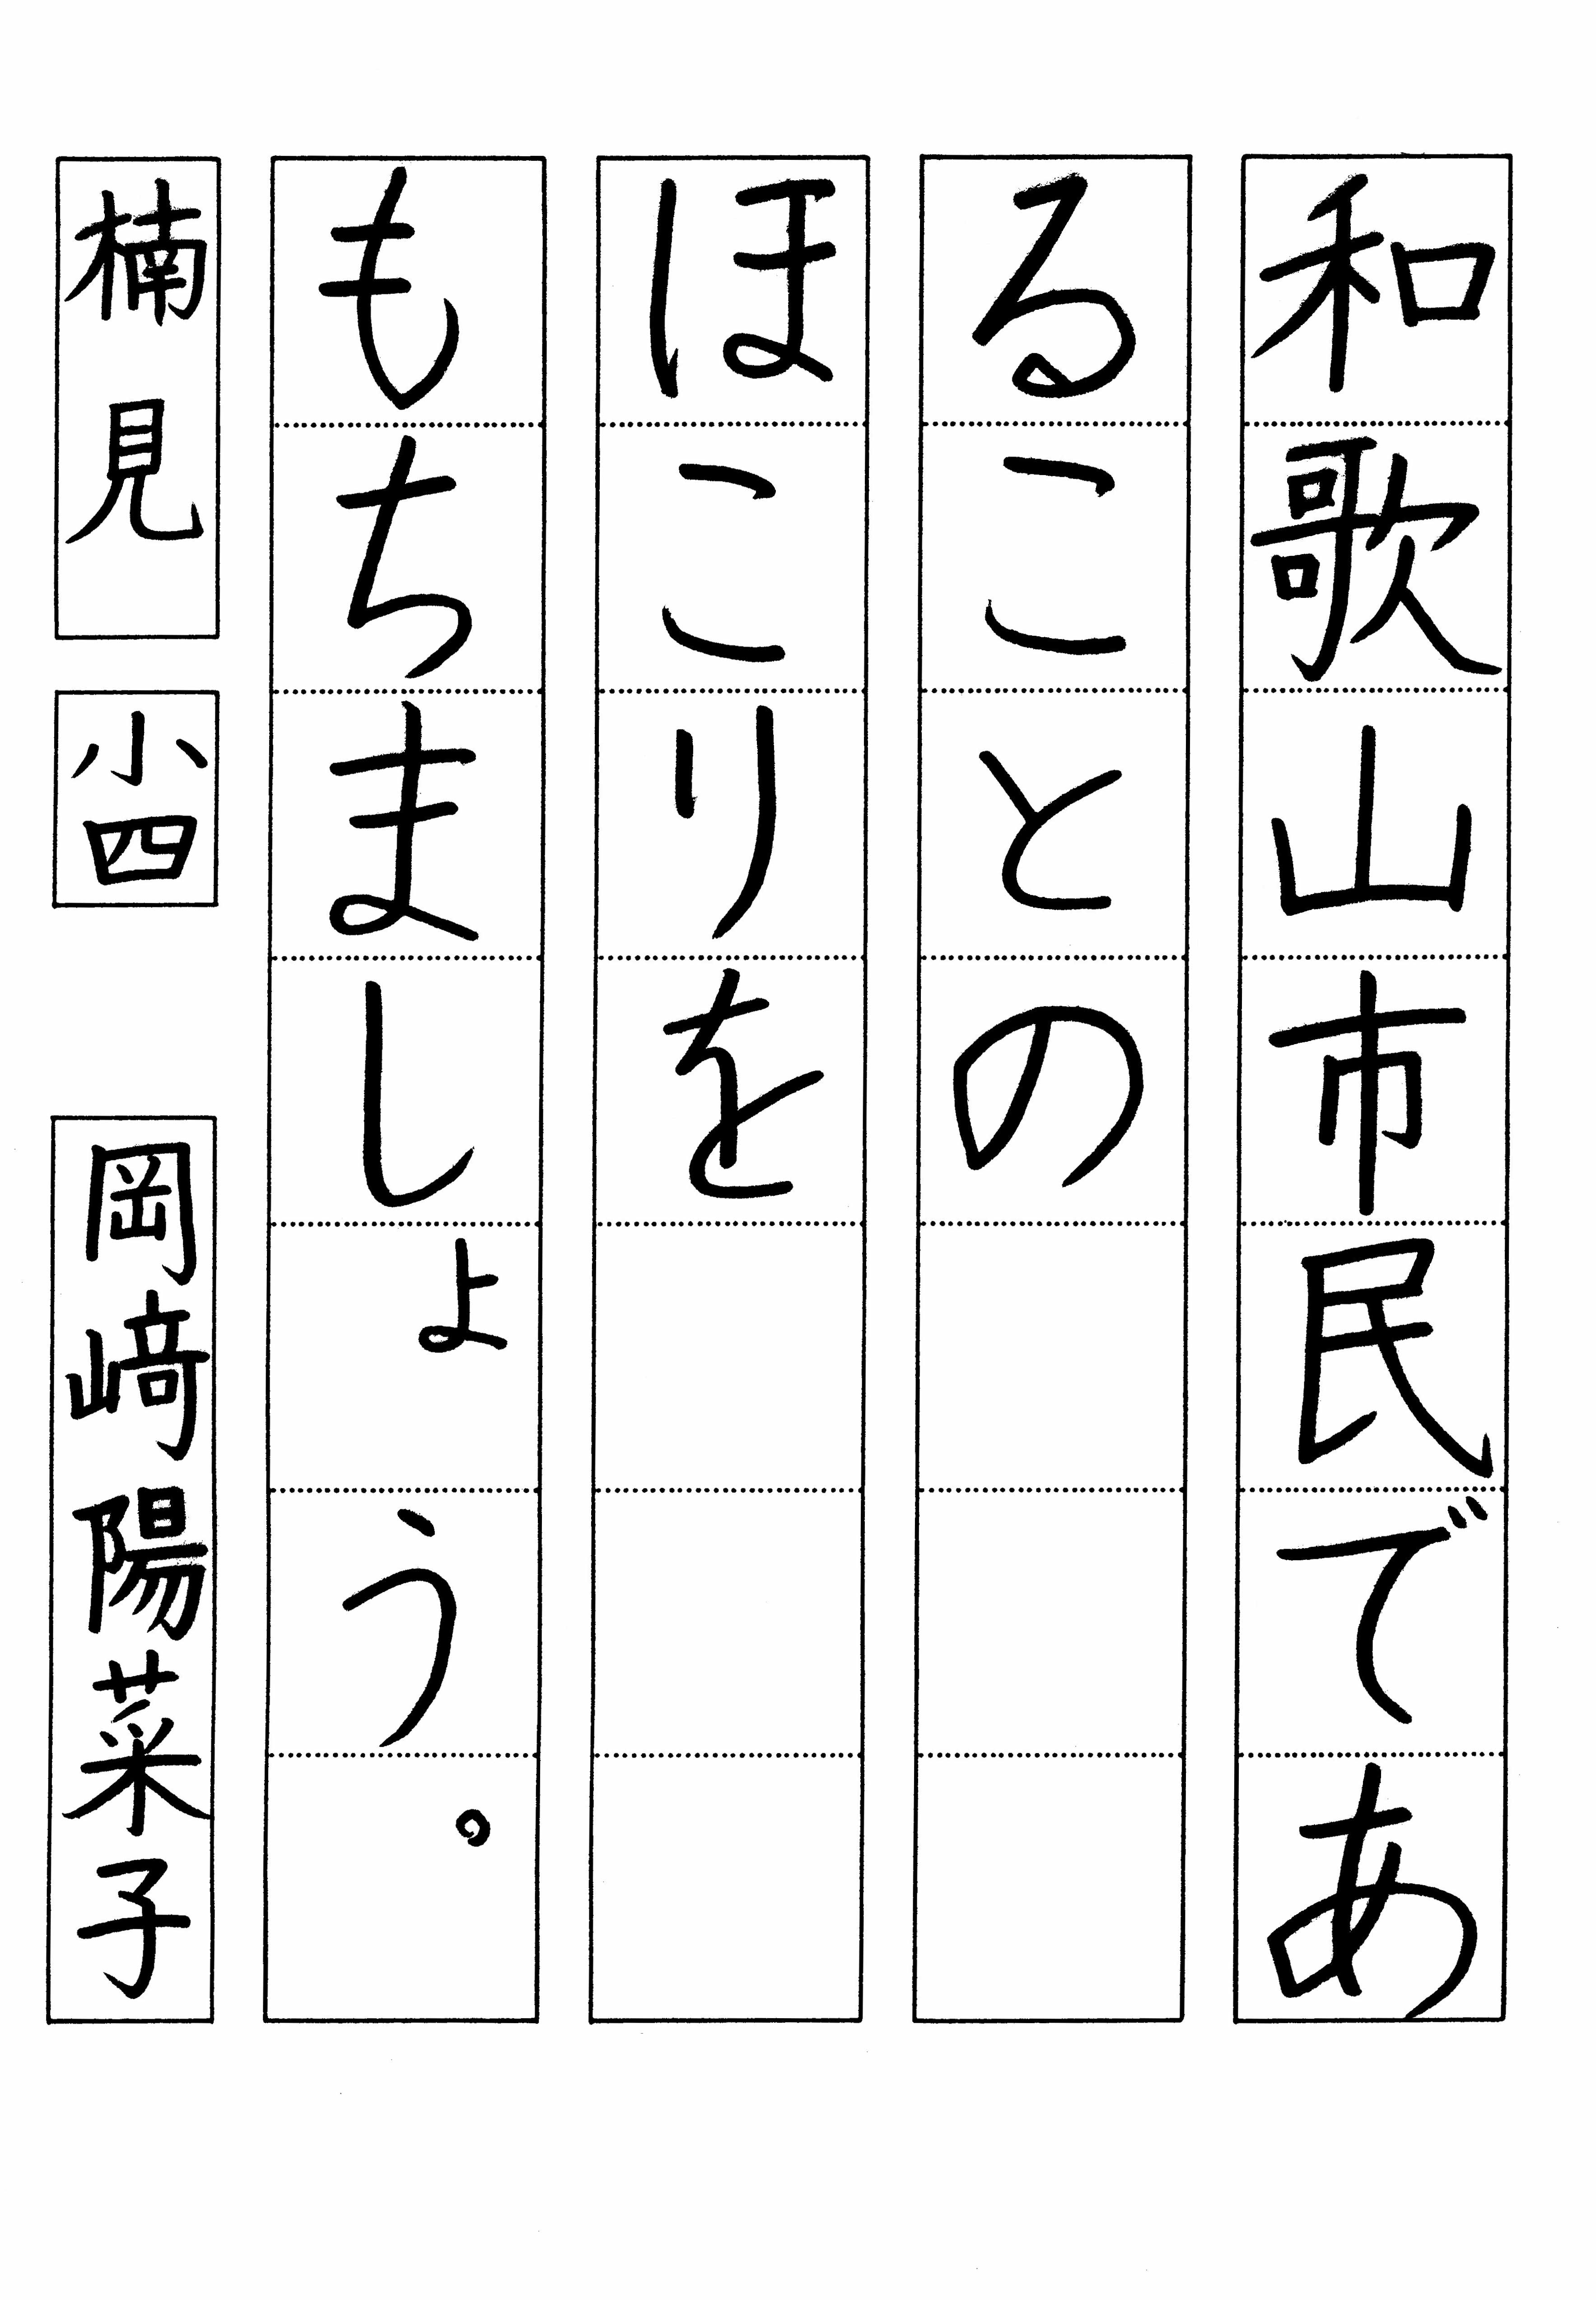 和歌山市民であ
ることの
ほこりを
もちましょう。
楠見 小四 岡﨑陽菜子